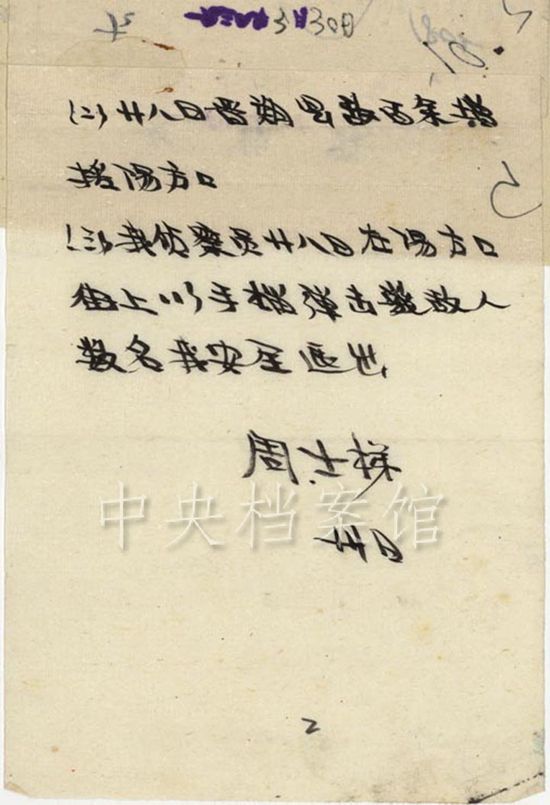 3月30日
(二)廿八日晋朔县敌百余增
援阳方口
(三)我侦察员廿八日在阳方口
街上以手榴弹击毙敌人
数名我安全返出
周士梯
卅日
中央档案馆
2